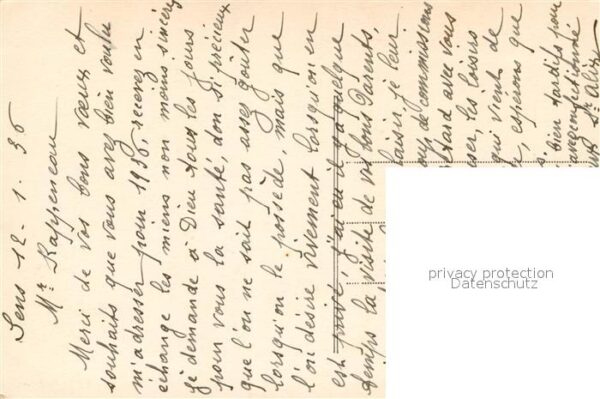 Sens 12. 1. 36
Mr. Rappeneau
Merci de vos bons vœux et
souhaits que vous avez bien voulu
m'adresser pour 1936, recevez en
échange les miens non moins sincères
je demande à Dieu tous les jours
pour vous la santé, don si précieux
que l'on ne sait pas assez goûter
lorsqu'on le possède, mais que
l'on désire vivement lorsqu'on en
est privé, j'ai eu il y a quelque
temps la visite de vos bons Parents
plaisir, je leur
de commissions
tard avec vous
les loisirs
qui vient de
espérons que
bien tardifs pour
St. Alix
privacy protection
Datenschutz